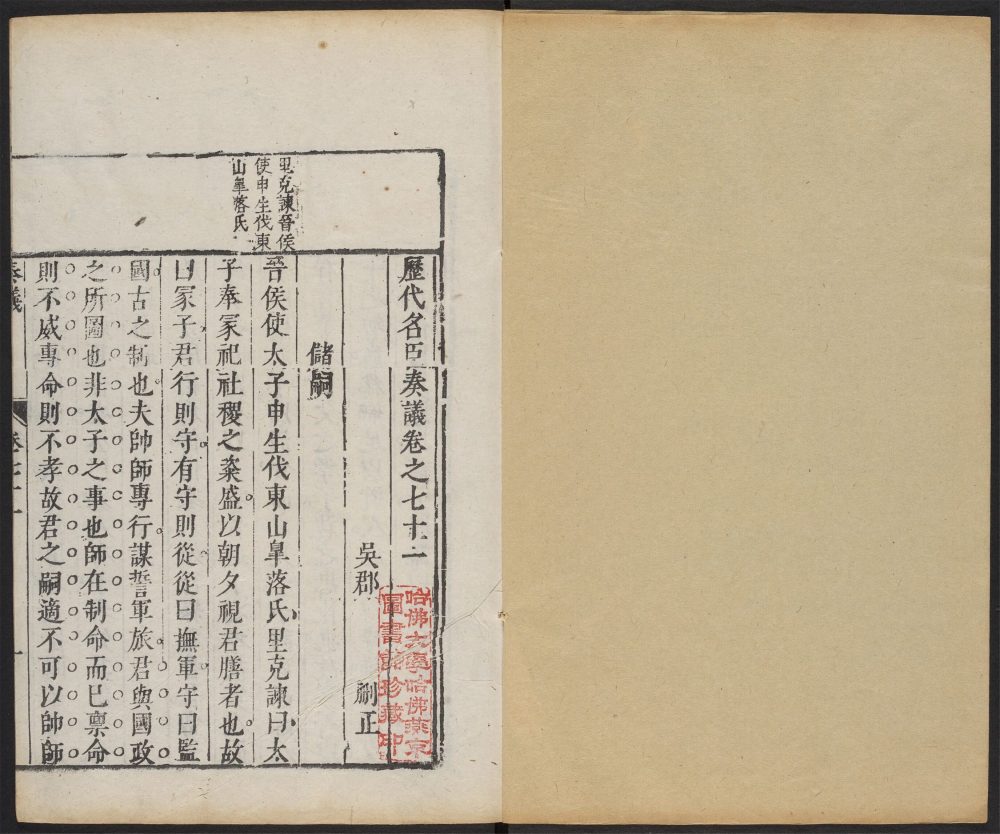 歷代名臣奏議卷之七十一
吳郡 刪正
哈佛大學哈佛燕京
圖書館珍藏印
儲嗣
里克諫晉侯
使申生伐東
山皐落氏
晉侯使太子申生伐東山皐落氏里克諫曰太
子奉冢祀社稷之粢盛以朝夕視君膳者也故
曰冢子君行則守有守則從從曰撫軍守曰監
國古之制也夫帥師專行謀誓軍旅君與國政
之所圖也非太子之事也師在制命而已禀命
則不威專命則不孝故君之嗣適不可以帥師
奏議 卷七十一 一